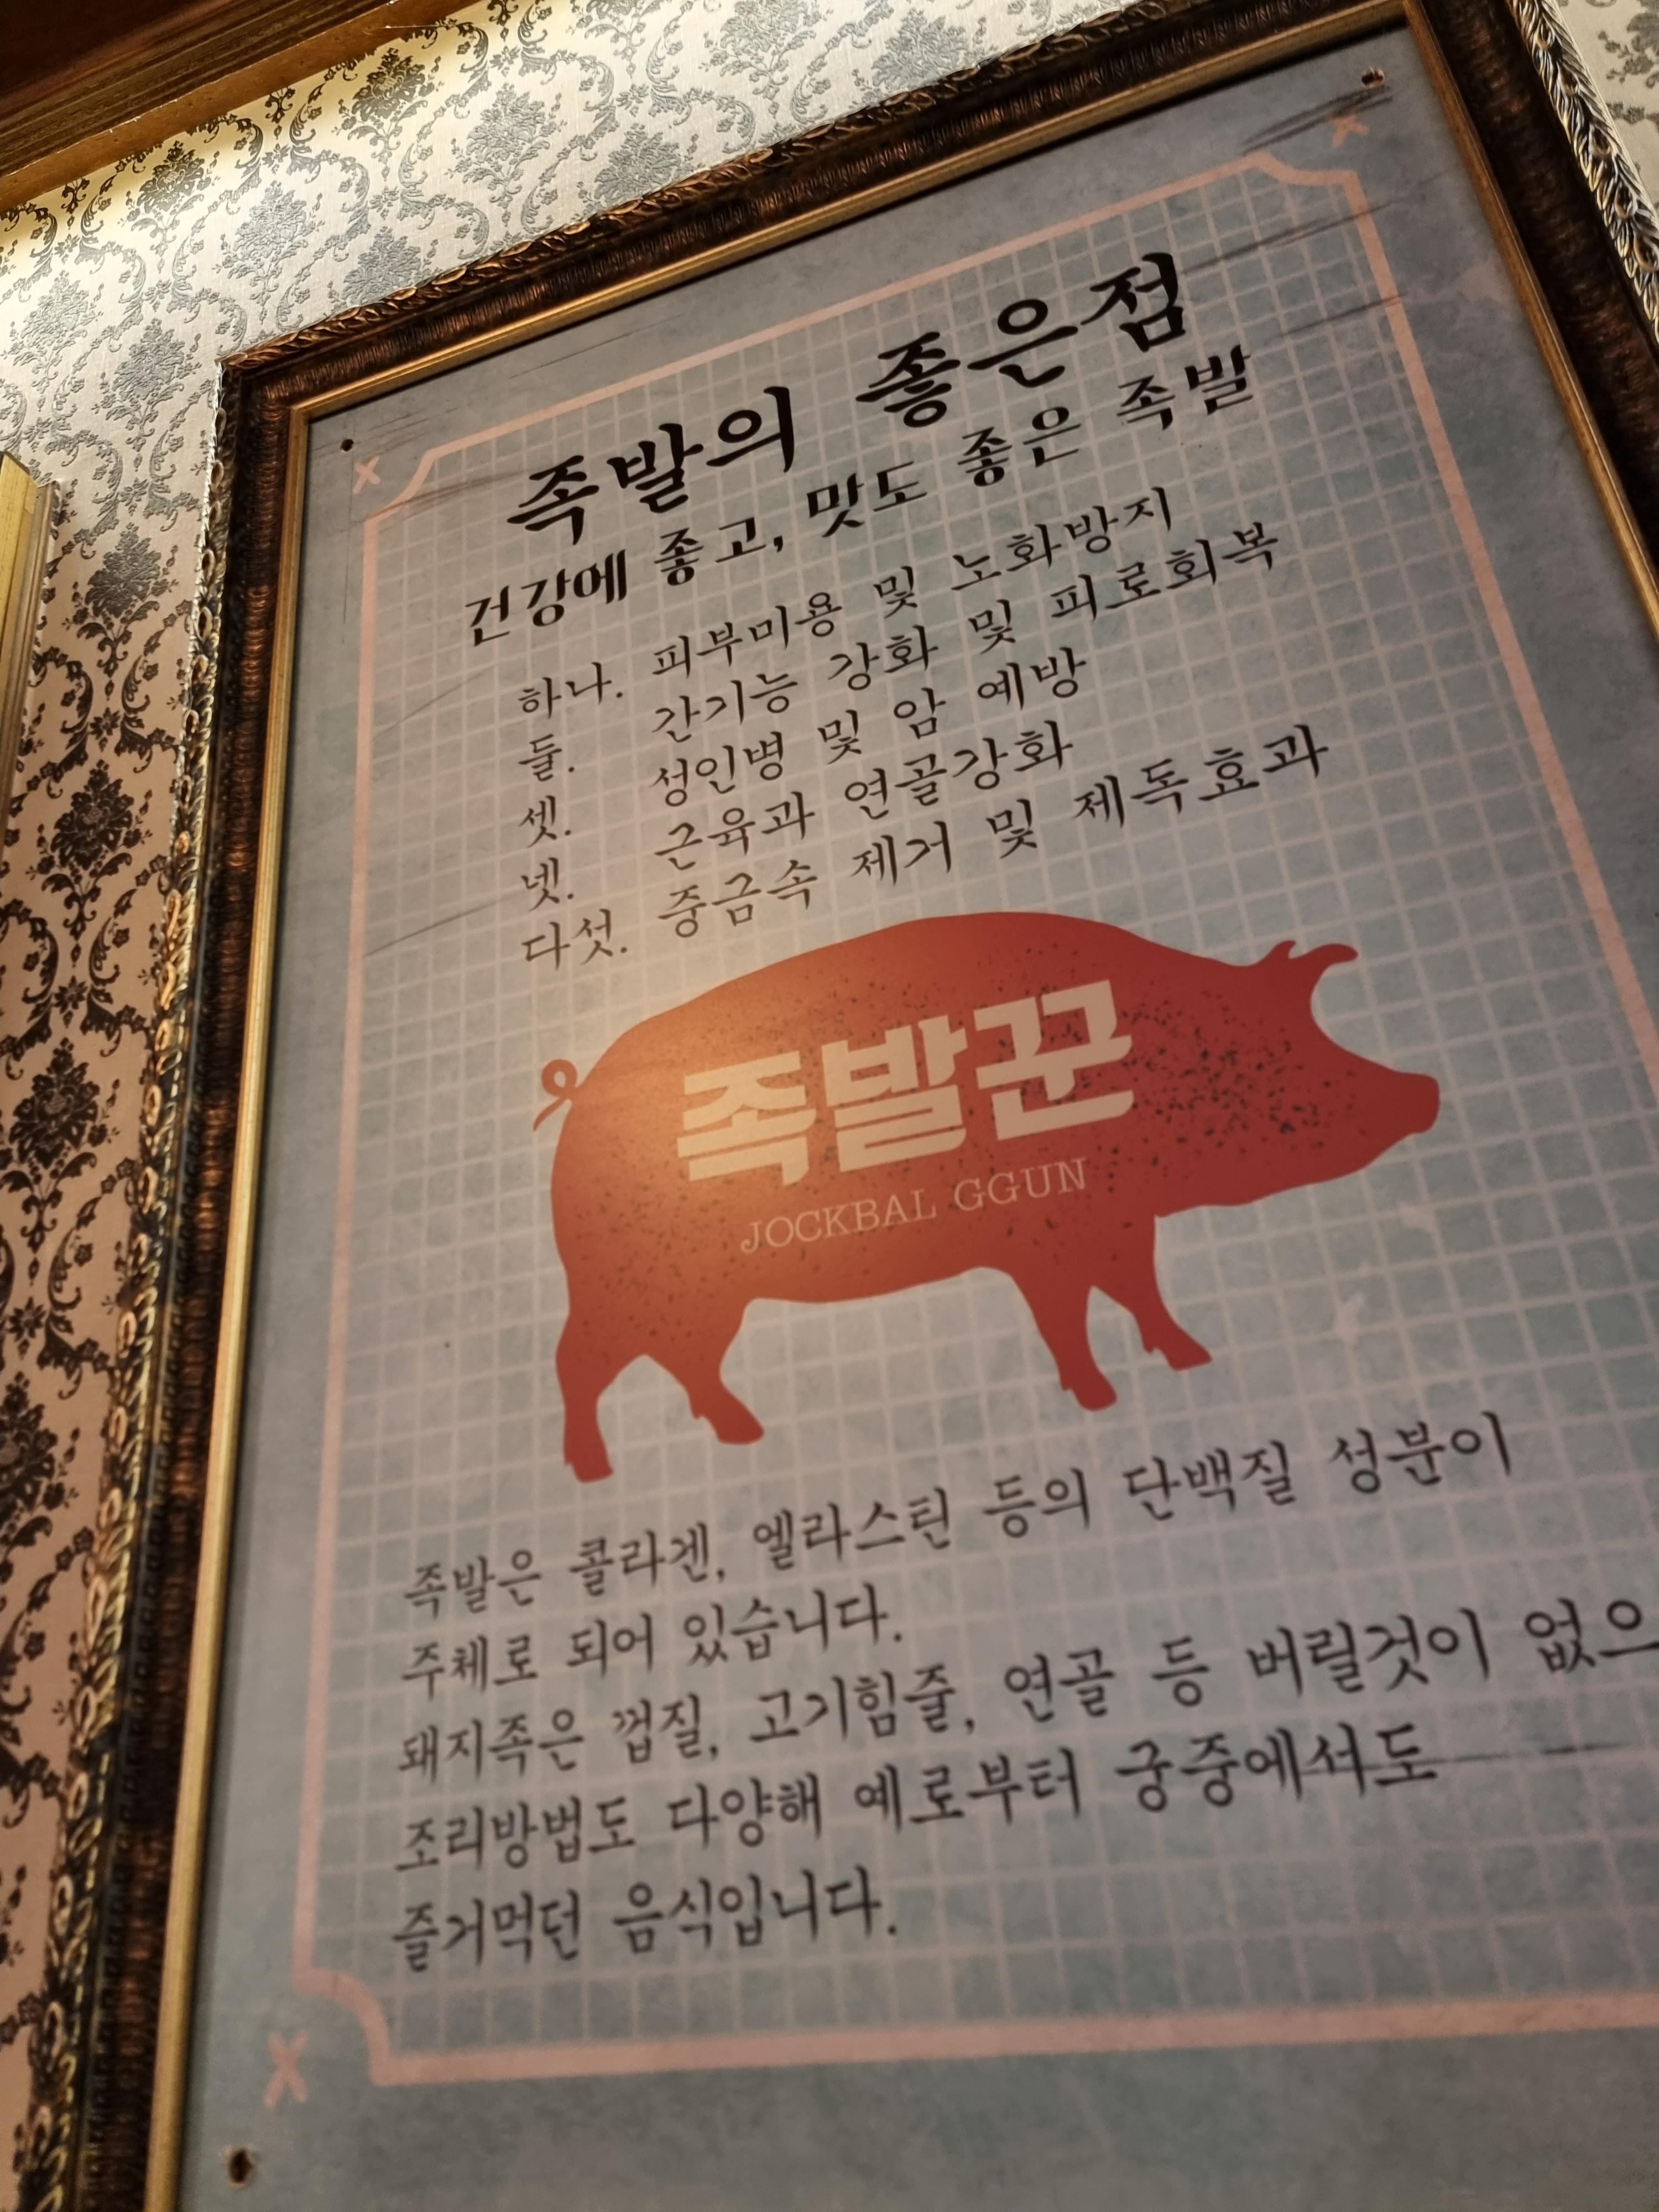 족발의 좋은점
건강에 좋고, 맛도 좋은 족발
하나. 피부미용 및 노화방지
둘. 간기능 강화 및 피로회복
셋. 성인병 및 암 예방
넷. 근육과 연골강화
다섯. 중금속 제거 및 제독효과
족발꾼
JOCKBAL GGUN
족발은 콜라겐, 엘라스틴 등의 단백질 성분이
주체로 되어 있습니다.
돼지족은 껍질, 고기힘줄, 연골 등 버릴것이 없으
조리방법도 다양해 예로부터 궁중에서도
즐거먹던 음식입니다.